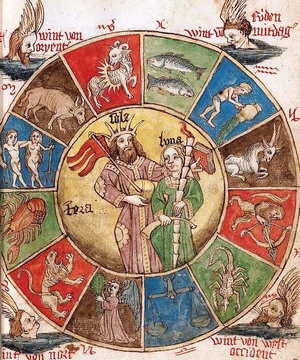 wint von
orient
wint von
süden
mitdag
sulz
luna
Tera
wint von west
occident
wint von nort